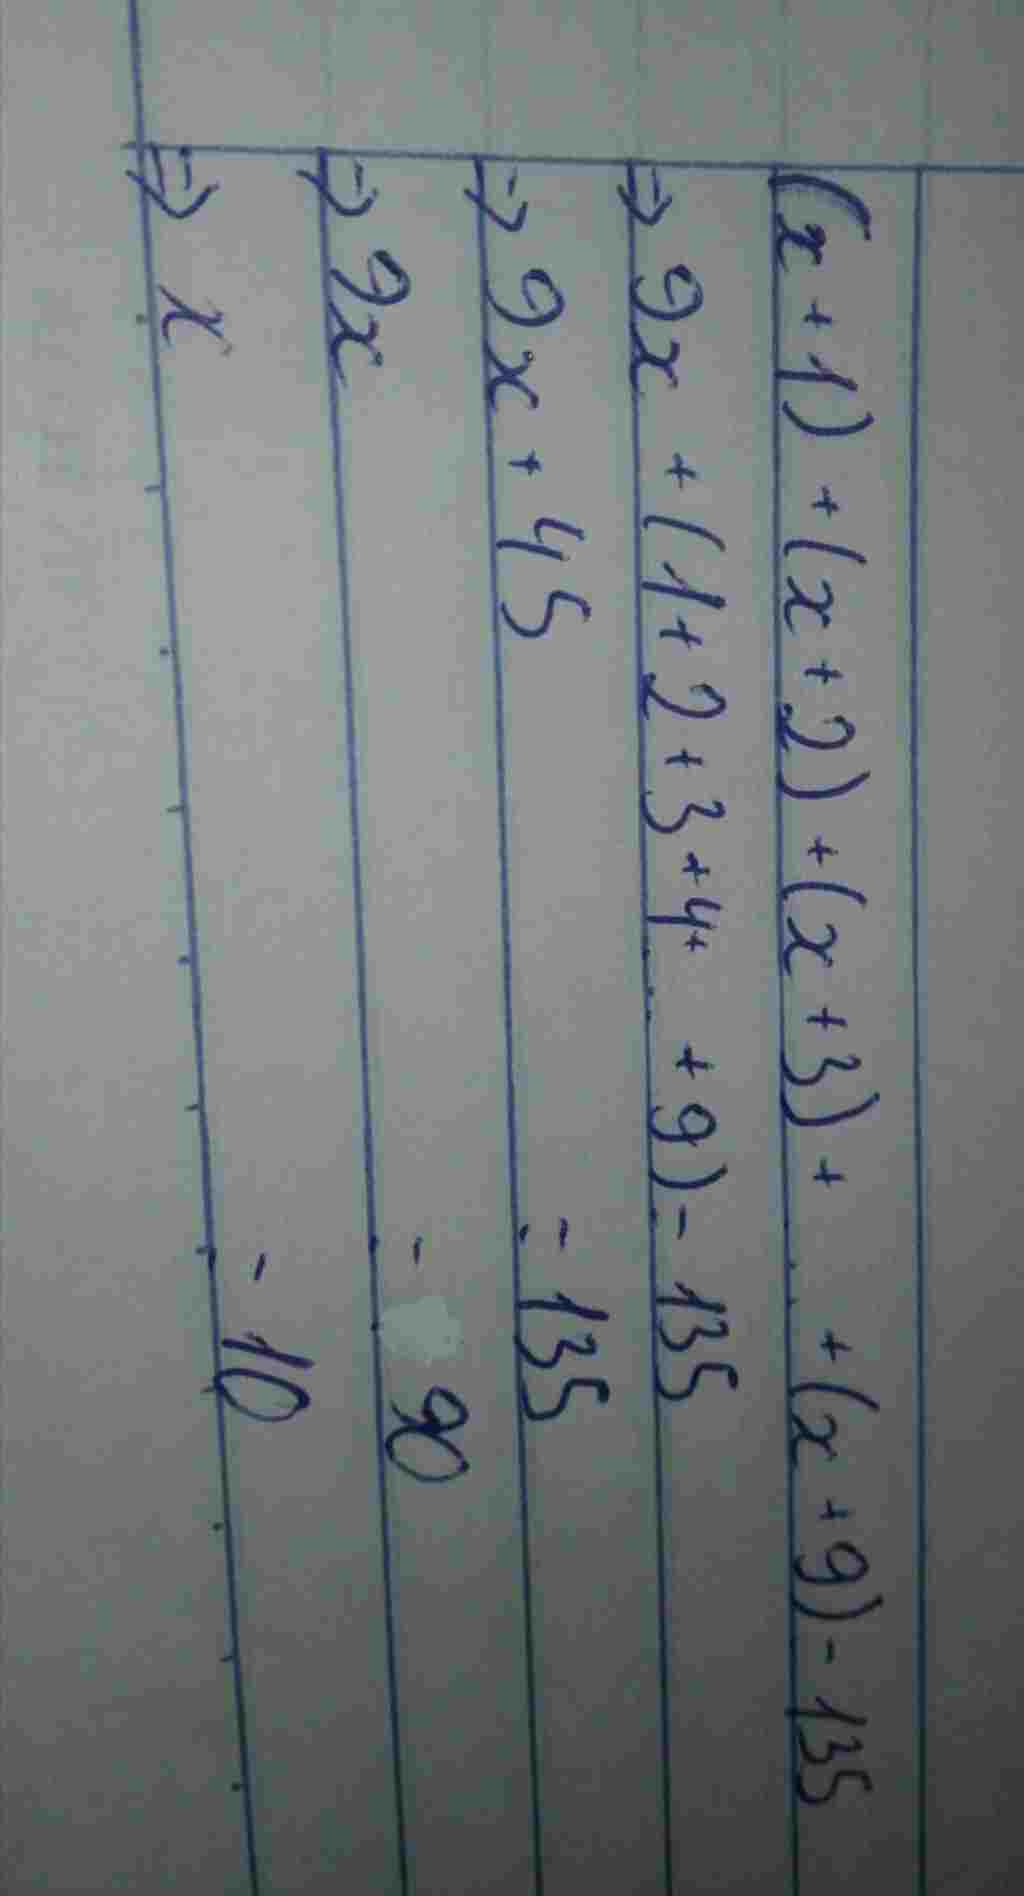 (x + 1) + (x + 2) + (x + 3) + ... + (x + 9) = 135
=> 9x + (1 + 2 + 3 + 4 + ... + 9) = 135
=> 9x + 45 = 135
=> 9x = 90
=> x = 10